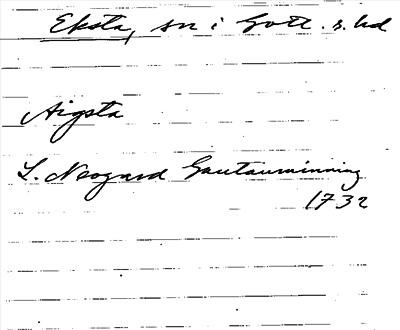 Eksta, sn i Gotl. s. hd
Aigsta
L. Neogard Gautauminning
1732